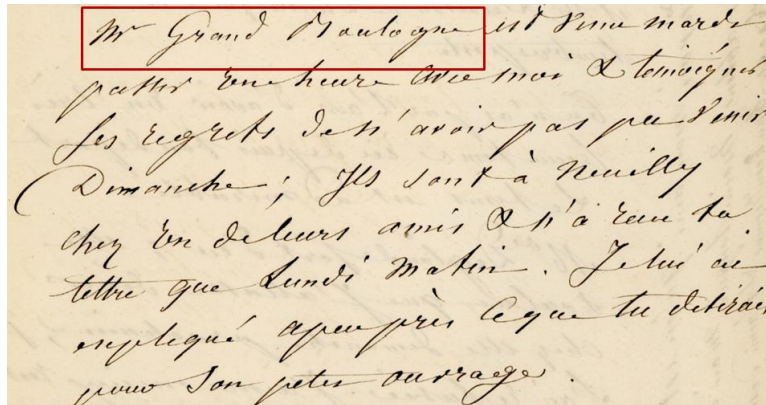 Mr Grand Boulogne est venu mardi
passer une heure avec moi & temoigner
ses regrets de n'avoir pas pu venir
Dimanche ; Ils sont à Neuilly
chez un de leurs amis & n'a reçu ta
lettre que Lundi matin. Je lui ai
expliqué apeuprès ce que tu desirais
pour son petit ouvrage.